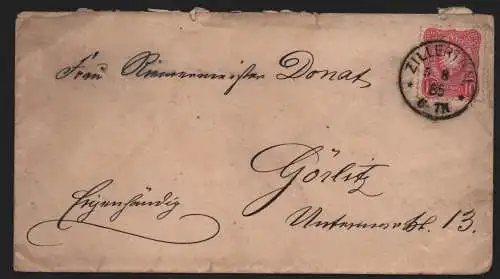 ZILLERTHAL
5 8
85
6-7N
Frau Riemermeister Donat
Görlitz
Eigenhändig
Untermarkt. 13.